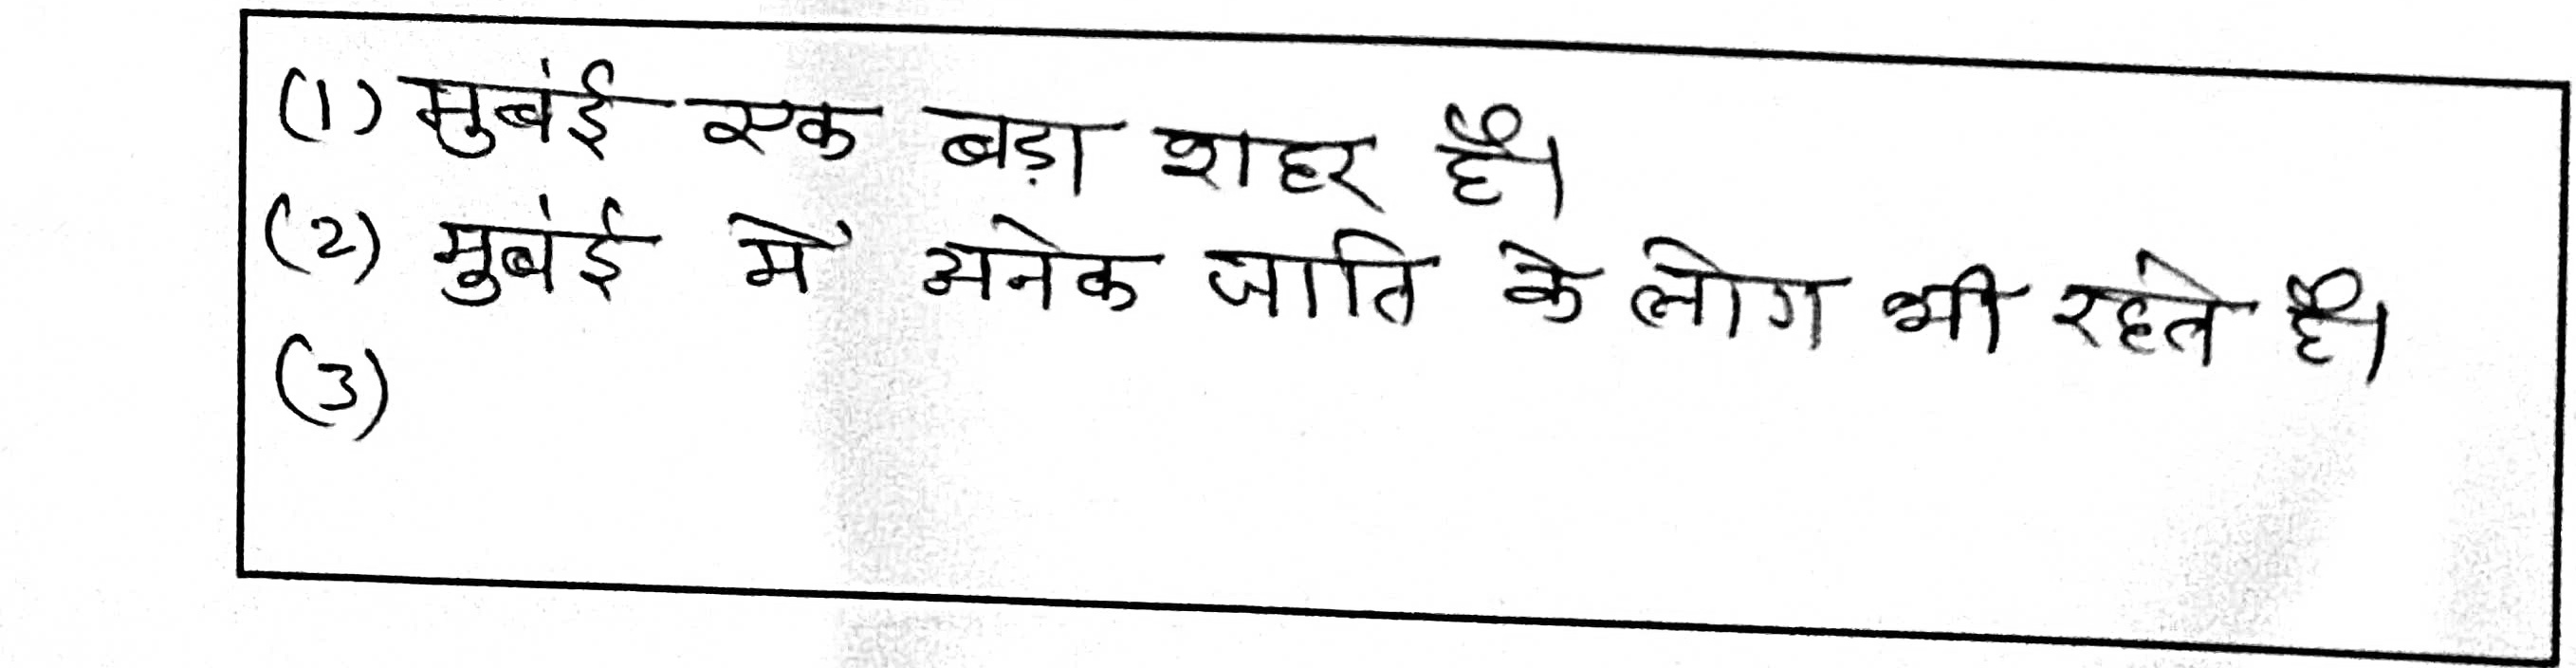 (1) मुबंई एक बड़ा शहर है।
(2) मुबंई में अनेक जाति के लोग भी रहते है।
(3)